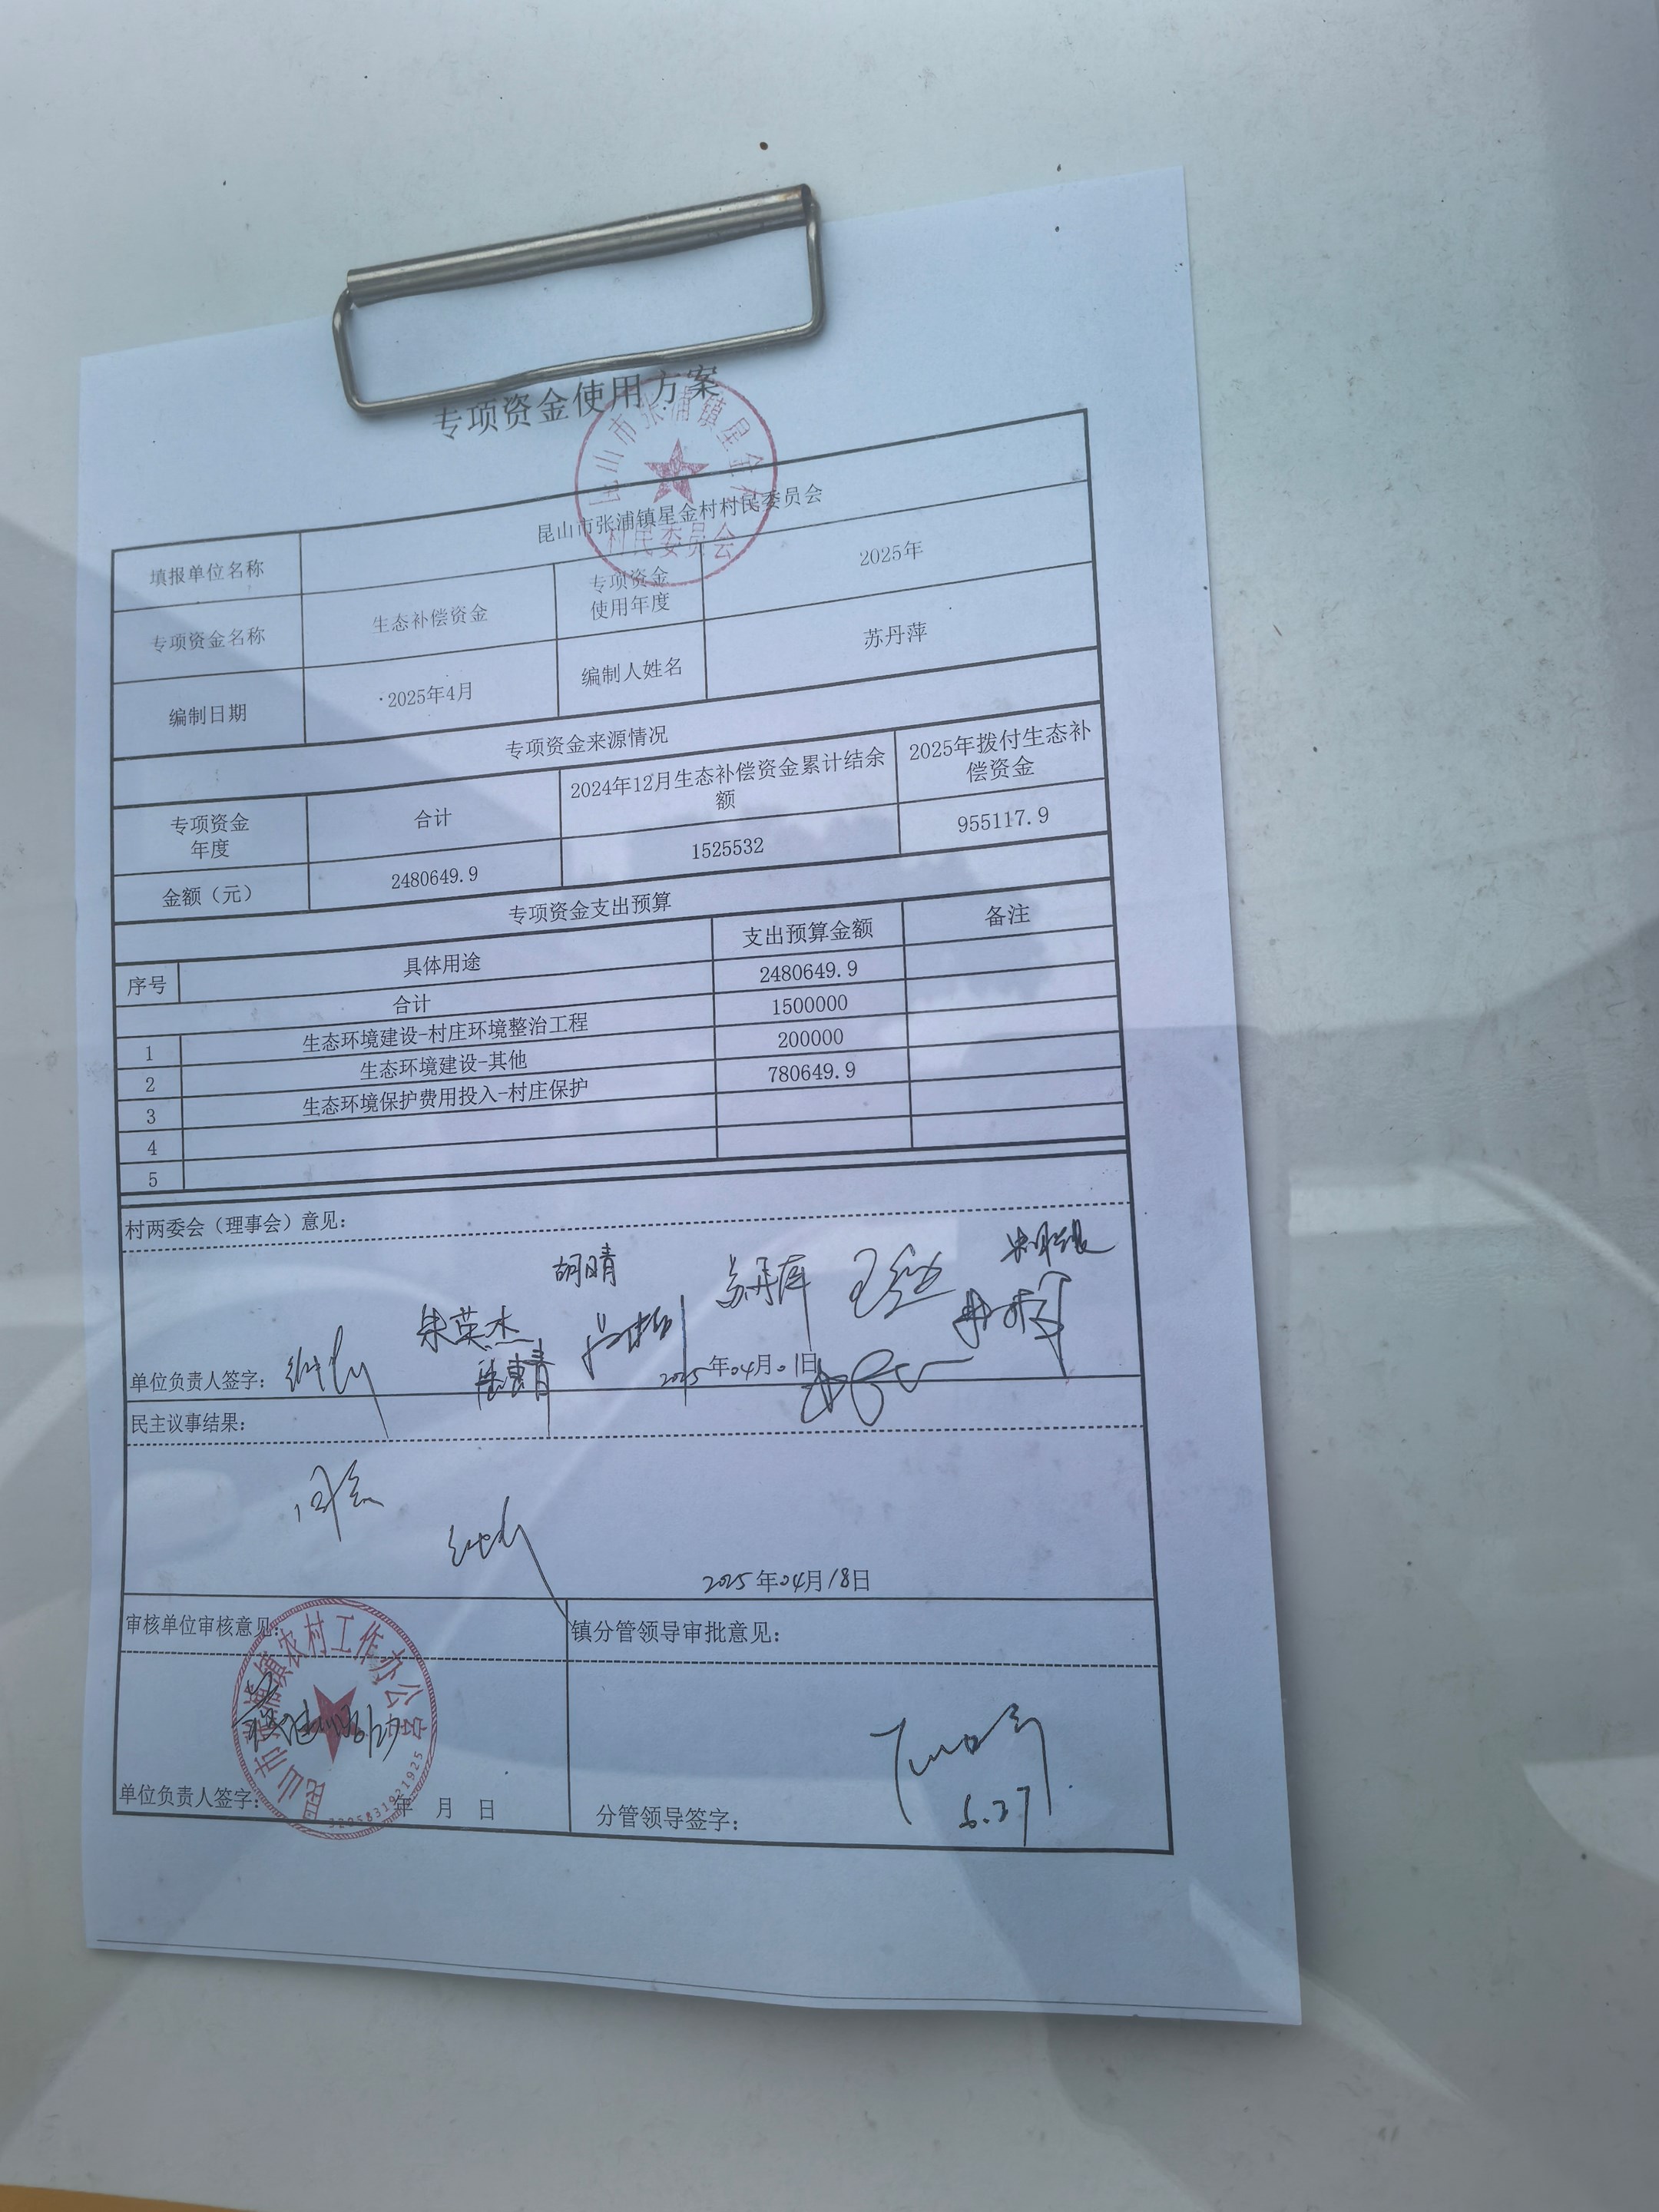 专项资金使用方案
昆山市张浦镇星金村
村民委员会
填报单位名称 昆山市张浦镇星金村村民委员会
专项资金名称 生态补偿资金 专项资金使用年度 2025年
编制日期 2025年4月 编制人姓名 苏丹萍
专项资金来源情况
专项资金年度 合计 2024年12月生态补偿资金累计结余额 2025年拨付生态补偿资金
金额（元） 2480649.9 1525532 955117.9
专项资金支出预算
序号 具体用途 支出预算金额 备注
合计 2480649.9
1 生态环境建设-村庄环境整治工程 1500000
2 生态环境建设-其他 200000
3 生态环境保护费用投入-村庄保护 780649.9
4
5
村两委会（理事会）意见：
胡晴
朱英杰
单位负责人签字： 2025年04月01日
民主议事结果：
同意
2025年04月18日
审核单位审核意见： 镇分管领导审批意见：
昆山市张浦镇农村工作办公室
3205831921925
6.27
单位负责人签字： 年 月 日 分管领导签字：